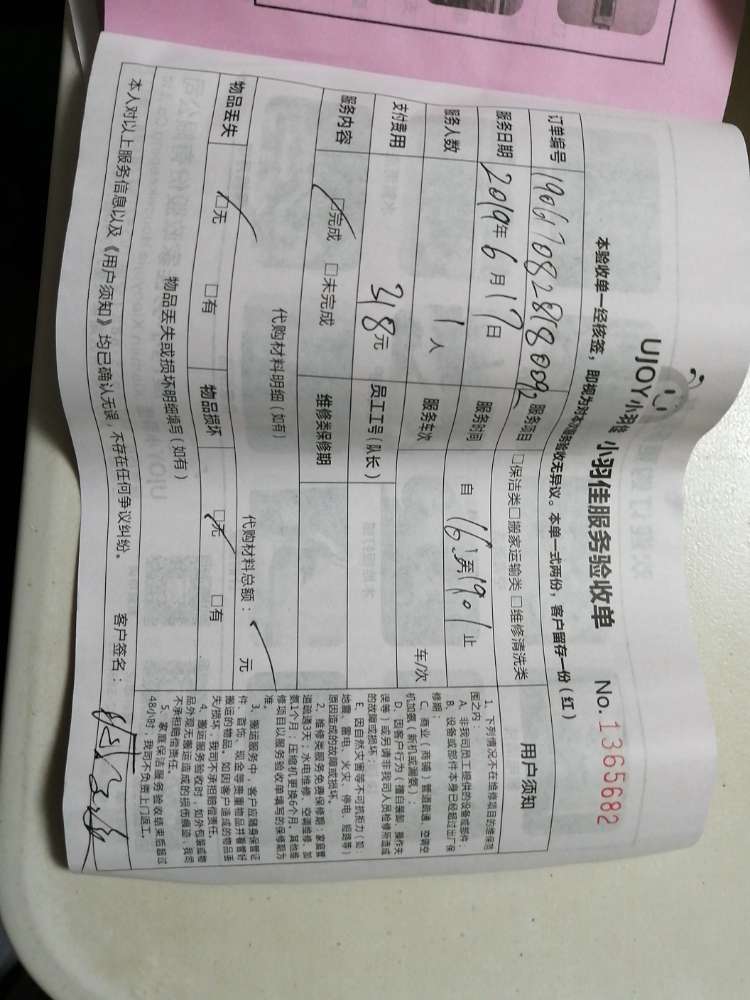 UJOY小羽佳 小羽佳服务验收单 No.1365682
本验收单一经核签，即视为对本次服务验收无异议。本单一式两份，客户留存一份（红）
订单编号 服务项目 □保洁类□搬家运输类 □维修清洗类
服务日期 2019年6月17日 服务时间 自 16:至19.01止
服务人数 1人 服务车次 车/次
支付费用 318元 员工工号（队长）
服务内容 □完成 □未完成 维修类保修期
代购材料明细（如有） 代购材料总额： 元
物品丢失 □无 □有 物品损坏 □无 □有
物品丢失或损坏明细填写（如有）
本人对以上服务信息以及《用户须知》均已确认无误，不存在任何争议纠纷。 客户签名：
用户须知
1、下列情况不在维修项目的维保范
围之内：
A、非我司员工提供的设备或部件；
B、设备或部件本身已经超过出厂保
修期；
C、商业（商铺）管道疏通、空调空
机加氨（新机或漏氨）；
D、因客户行为（擅自装卸、操作失
误等）或另请非我司人员检修所造成
的故障或损坏；
E、因自然灾害等不可抗拒力（如：
地震、雷电、火灾、停电、短路等）
原因造成的故障或损坏。
2、维修类服务免费保修期：家庭管
道疏通3天；水电维修、空调维修、加
氨1个月；压缩机更换6个月，其他维
修项目以服务验收单填写的保修期为
准
3、搬运服务中，客户应随身保管证
件、首饰、现金等贵重物品并看管好
搬运的物品，如因客户造成的物品丢
失/损坏，我司不承担赔偿责任。
4、搬运服务验收时，如外包装或物
品外观无搬运造成的损伤痕迹，我司
不承担赔偿责任。
5、家庭保洁服务验收结束后超过
48小时，我司不负责上门返工。